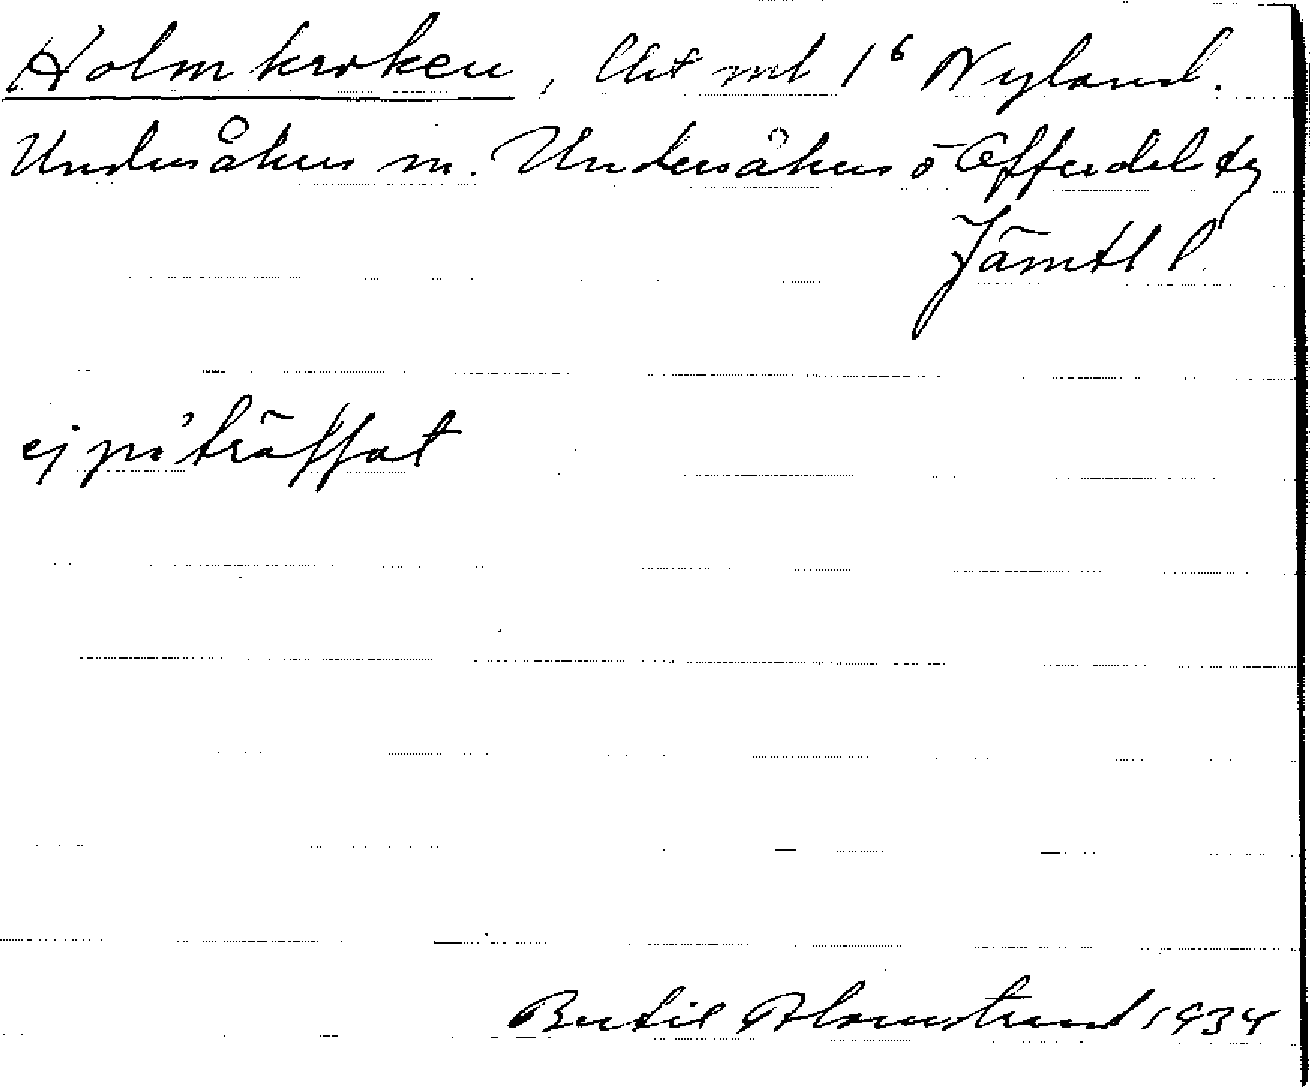 Holmkroken, Lht mt 1⁶ Nyland.
Undersåkers sn. Undersåkers o Offerdals tg
Jämtl l.
ej påträffat
Bertil Blomstrand 1934